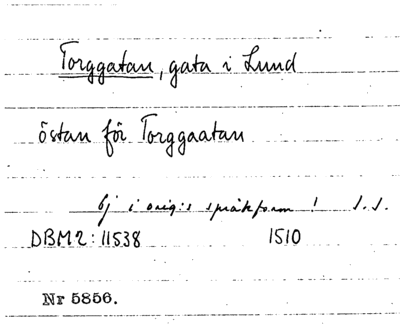 Torggatan, gata i Lund
östan för Torggaatan
Ej i orig:s språkform! S.S.
DBM2:11538 1510
Nr 5856.